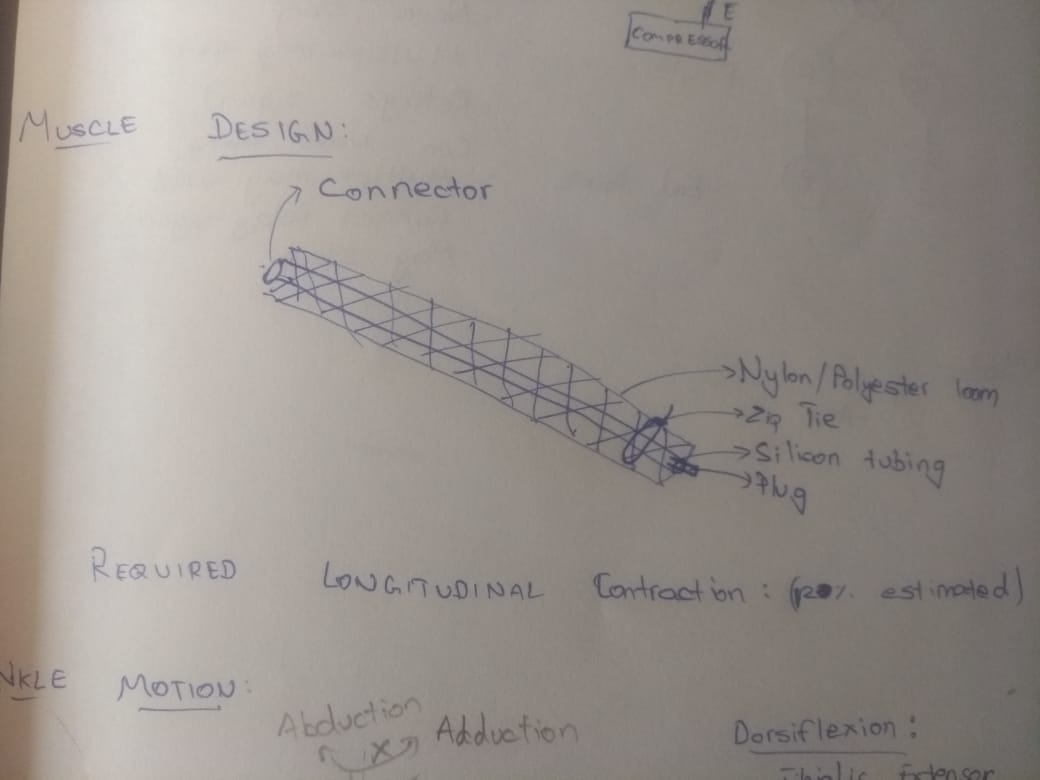 E
COMPRESSOR
MUSCLE DESIGN:
Connector
Nylon/Polyester loom
Zip Tie
Silicon tubing
Plug
REQUIRED LONGITUDINAL Contraction: ( estimated)
NKLE MOTION:
Abduction
X Adduction
Dorsiflexion:
Extensor